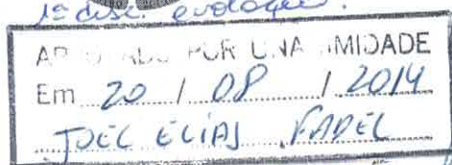 1ª disc. e votação.
APROVADO POR UNANIMIDADE
Em 20 / 08 / 2014
JOEL ELIAS FADEL